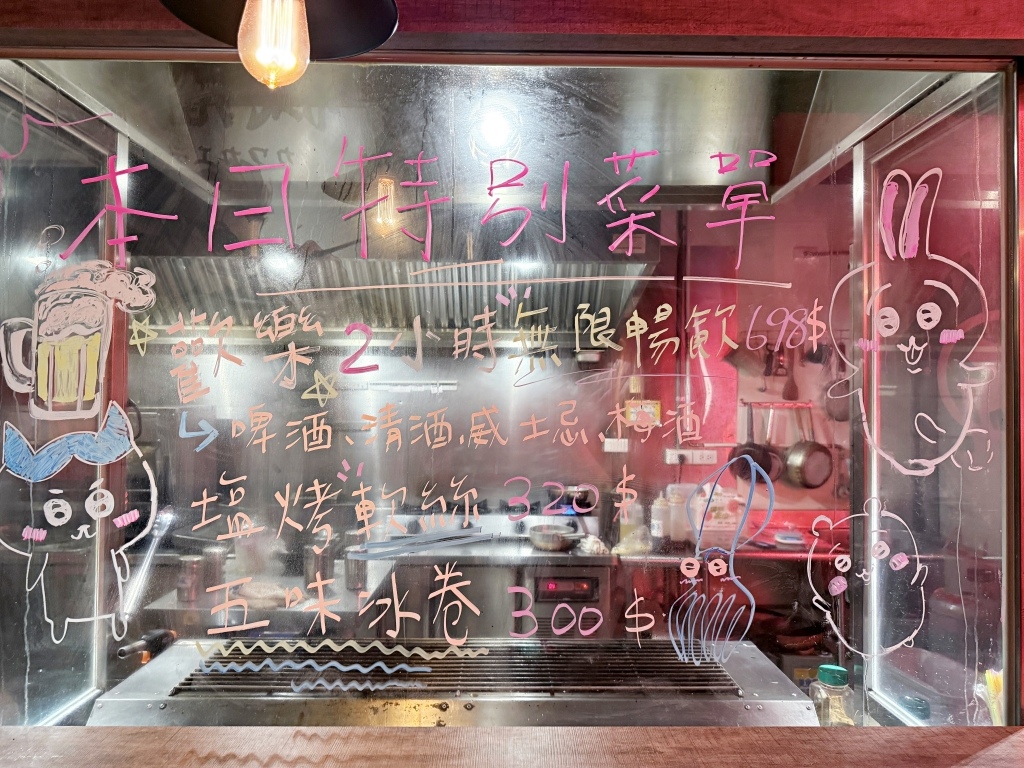 本日特別菜單
歡樂2小時無限暢飲698$
啤酒、清酒、威士忌、梅酒
塩烤軟絲 320$
五味冰卷 300$